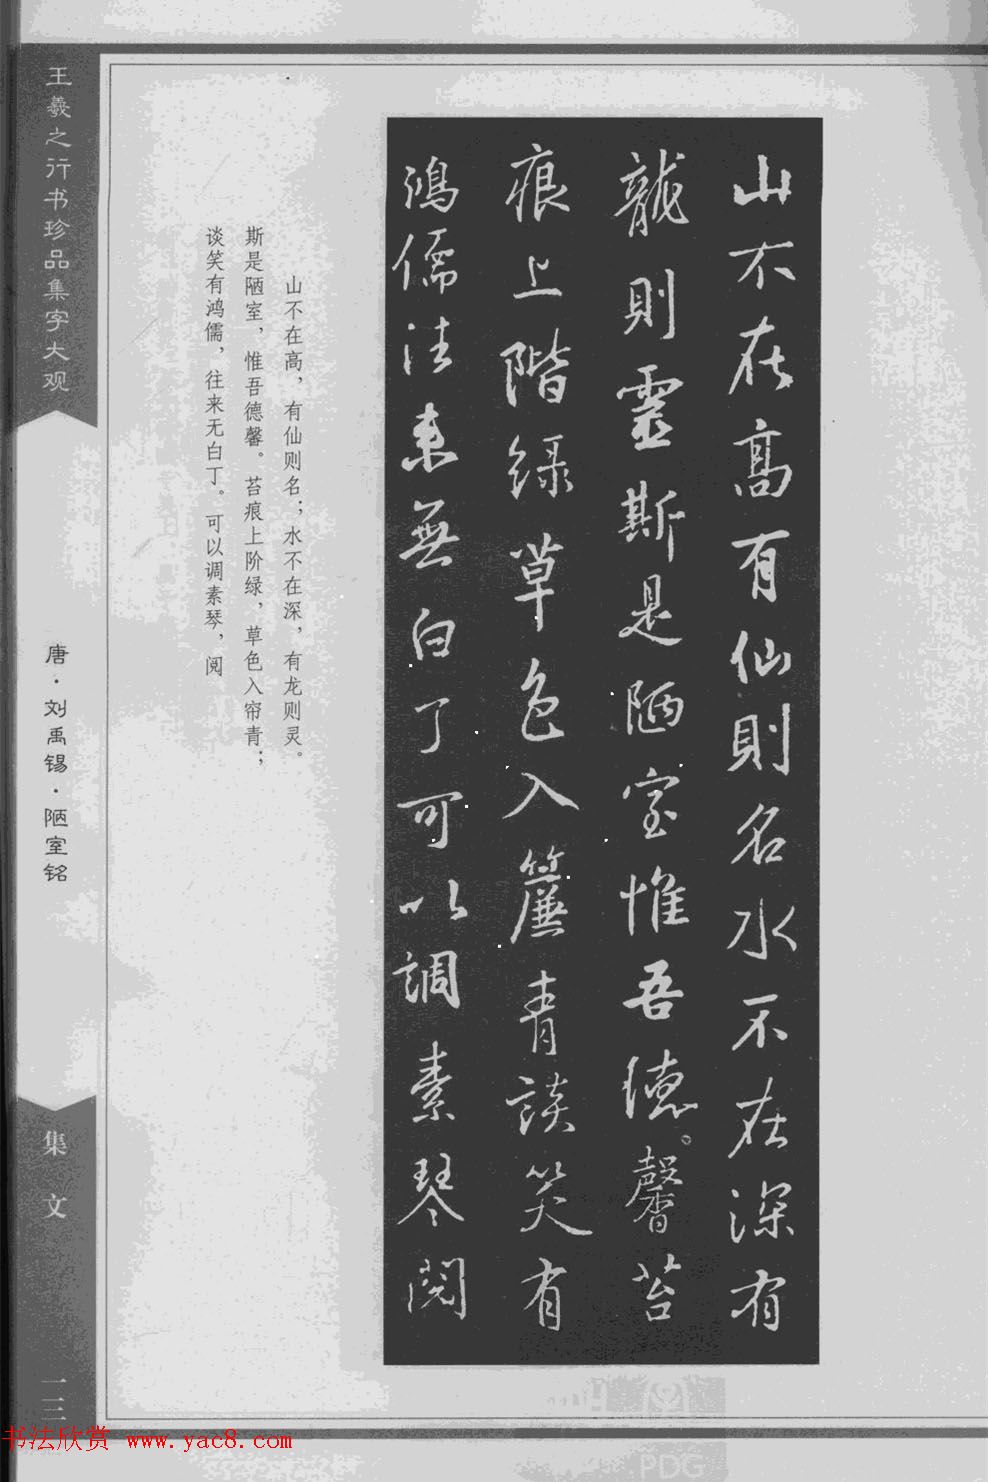 山不在高有仙則名水不在深有
龍則靈斯是陋室惟吾德馨苔
痕上階緑草色入簾青談笑有
鴻儒往来無白丁可以調素琴閲
山不在高，有仙则名；水不在深，有龙则灵。
斯是陋室，惟吾德馨。苔痕上阶绿，草色入帘青；
谈笑有鸿儒，往来无白丁。可以调素琴，阅
王羲之行书珍品集字大观
唐·刘禹锡·陋室铭
集文
一一三
书法欣赏 www.yac8.com
PDG